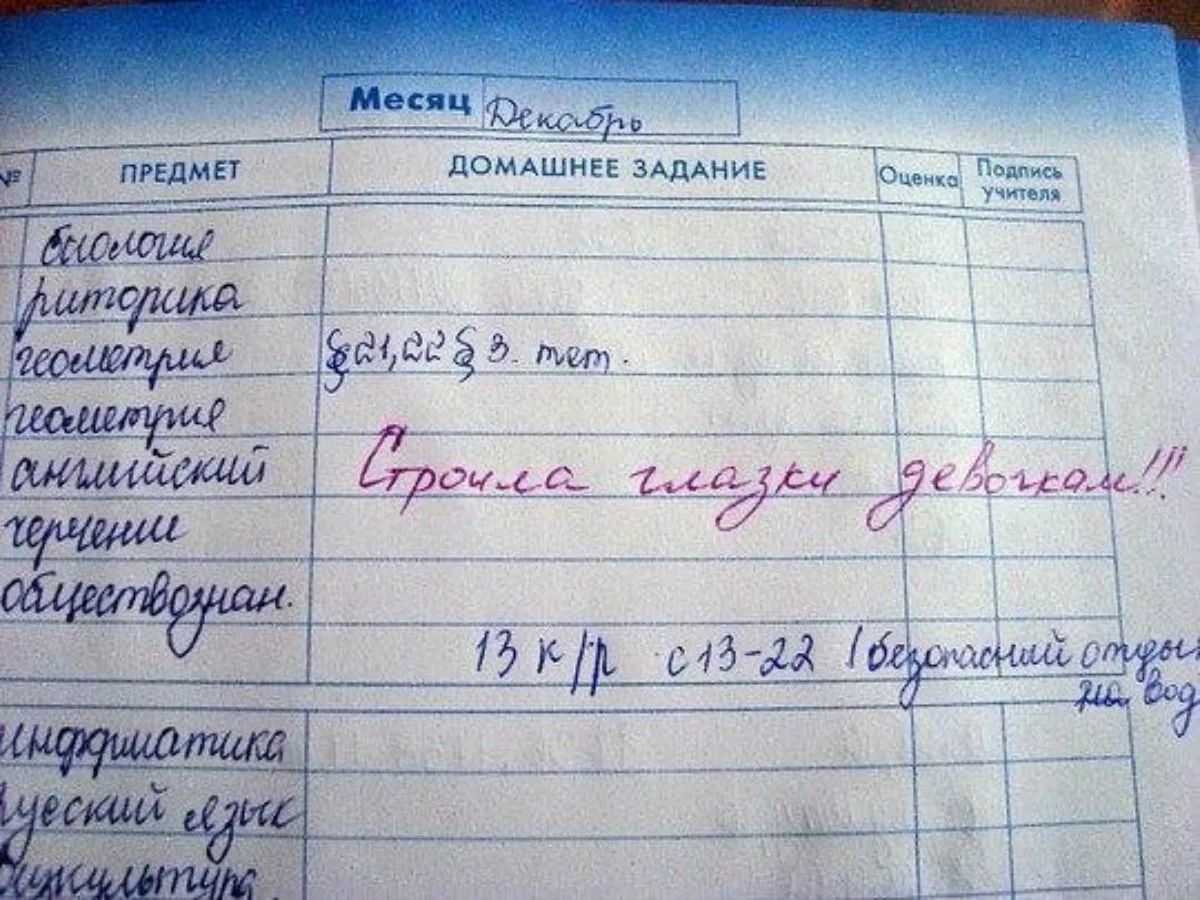 Месяц Декабрь
№ ПРЕДМЕТ ДОМАШНЕЕ ЗАДАНИЕ Оценка Подпись учителя
биология
риторика
геометрия §21,22 § 3. тет.
геометрия
английский Строила глазки девочкам!!!
черчение
обществознан.
13 к/р с13-22 (безопасный отды
на вод
информатика
русский язык
физкультура